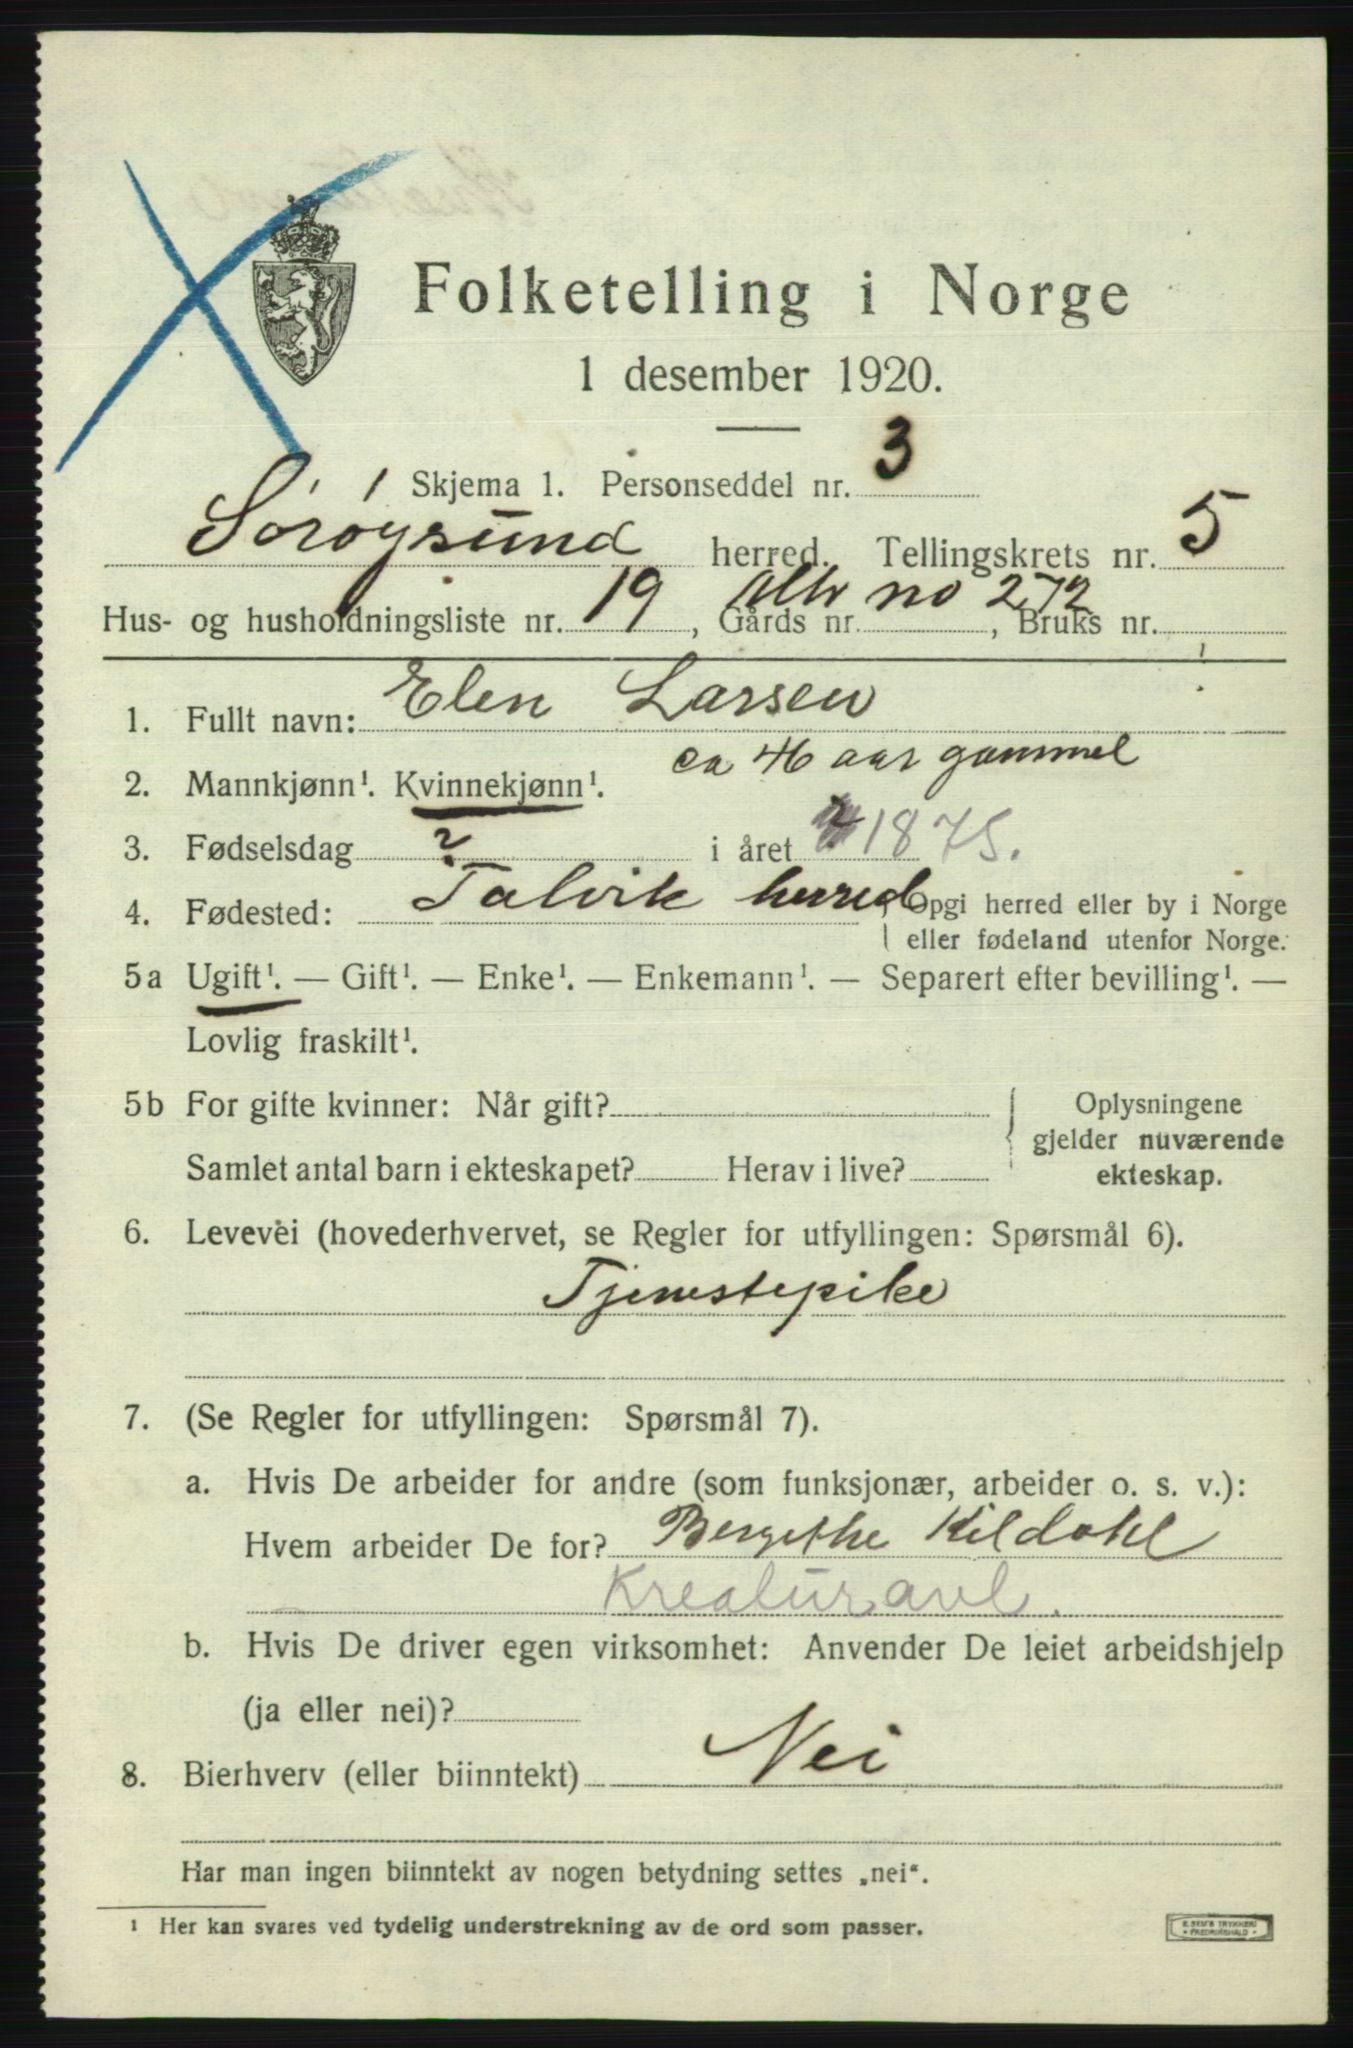 Folketelling i Norge
1 desember 1920.
Skjema 1. Personseddel nr. 3
Sørøysund herred. Tellingskrets nr. 5
Hus- og husholdningsliste nr. 19, Gårds nr. , Bruks nr.
no 272
1. Fullt navn: Elen Larsen
ca 46 aar gammel
2. Mannkjønn¹. Kvinnekjønn¹.
3. Fødselsdag ? i året 1875.
4. Fødested: Talvik herred Opgi herred eller by i Norge
eller fødeland utenfor Norge.
5a Ugift¹. — Gift¹. — Enke¹. — Enkemann¹. — Separert efter bevilling¹. —
Lovlig fraskilt¹.
5b For gifte kvinner: Når gift? Oplysningene
gjelder nuværende
Samlet antal barn i ekteskapet? Herav i live? ekteskap.
6. Levevei (hovederhvervet, se Regler for utfyllingen: Spørsmål 6).
Tjenestepike
7. (Se Regler for utfyllingen: Spørsmål 7).
a. Hvis De arbeider for andre (som funksjonær, arbeider o. s. v.):
Hvem arbeider De for? Bergithe Kildahl
Kreaturavl.
b. Hvis De driver egen virksomhet: Anvender De leiet arbeidshjelp
(ja eller nei)?
8. Bierhverv (eller biinntekt) Nei
Har man ingen biinntekt av nogen betydning settes „nei“.
¹ Her kan svares ved tydelig understrekning av de ord som passer.
E. SEM'S TRYKKERI
FREDRIKSHALD